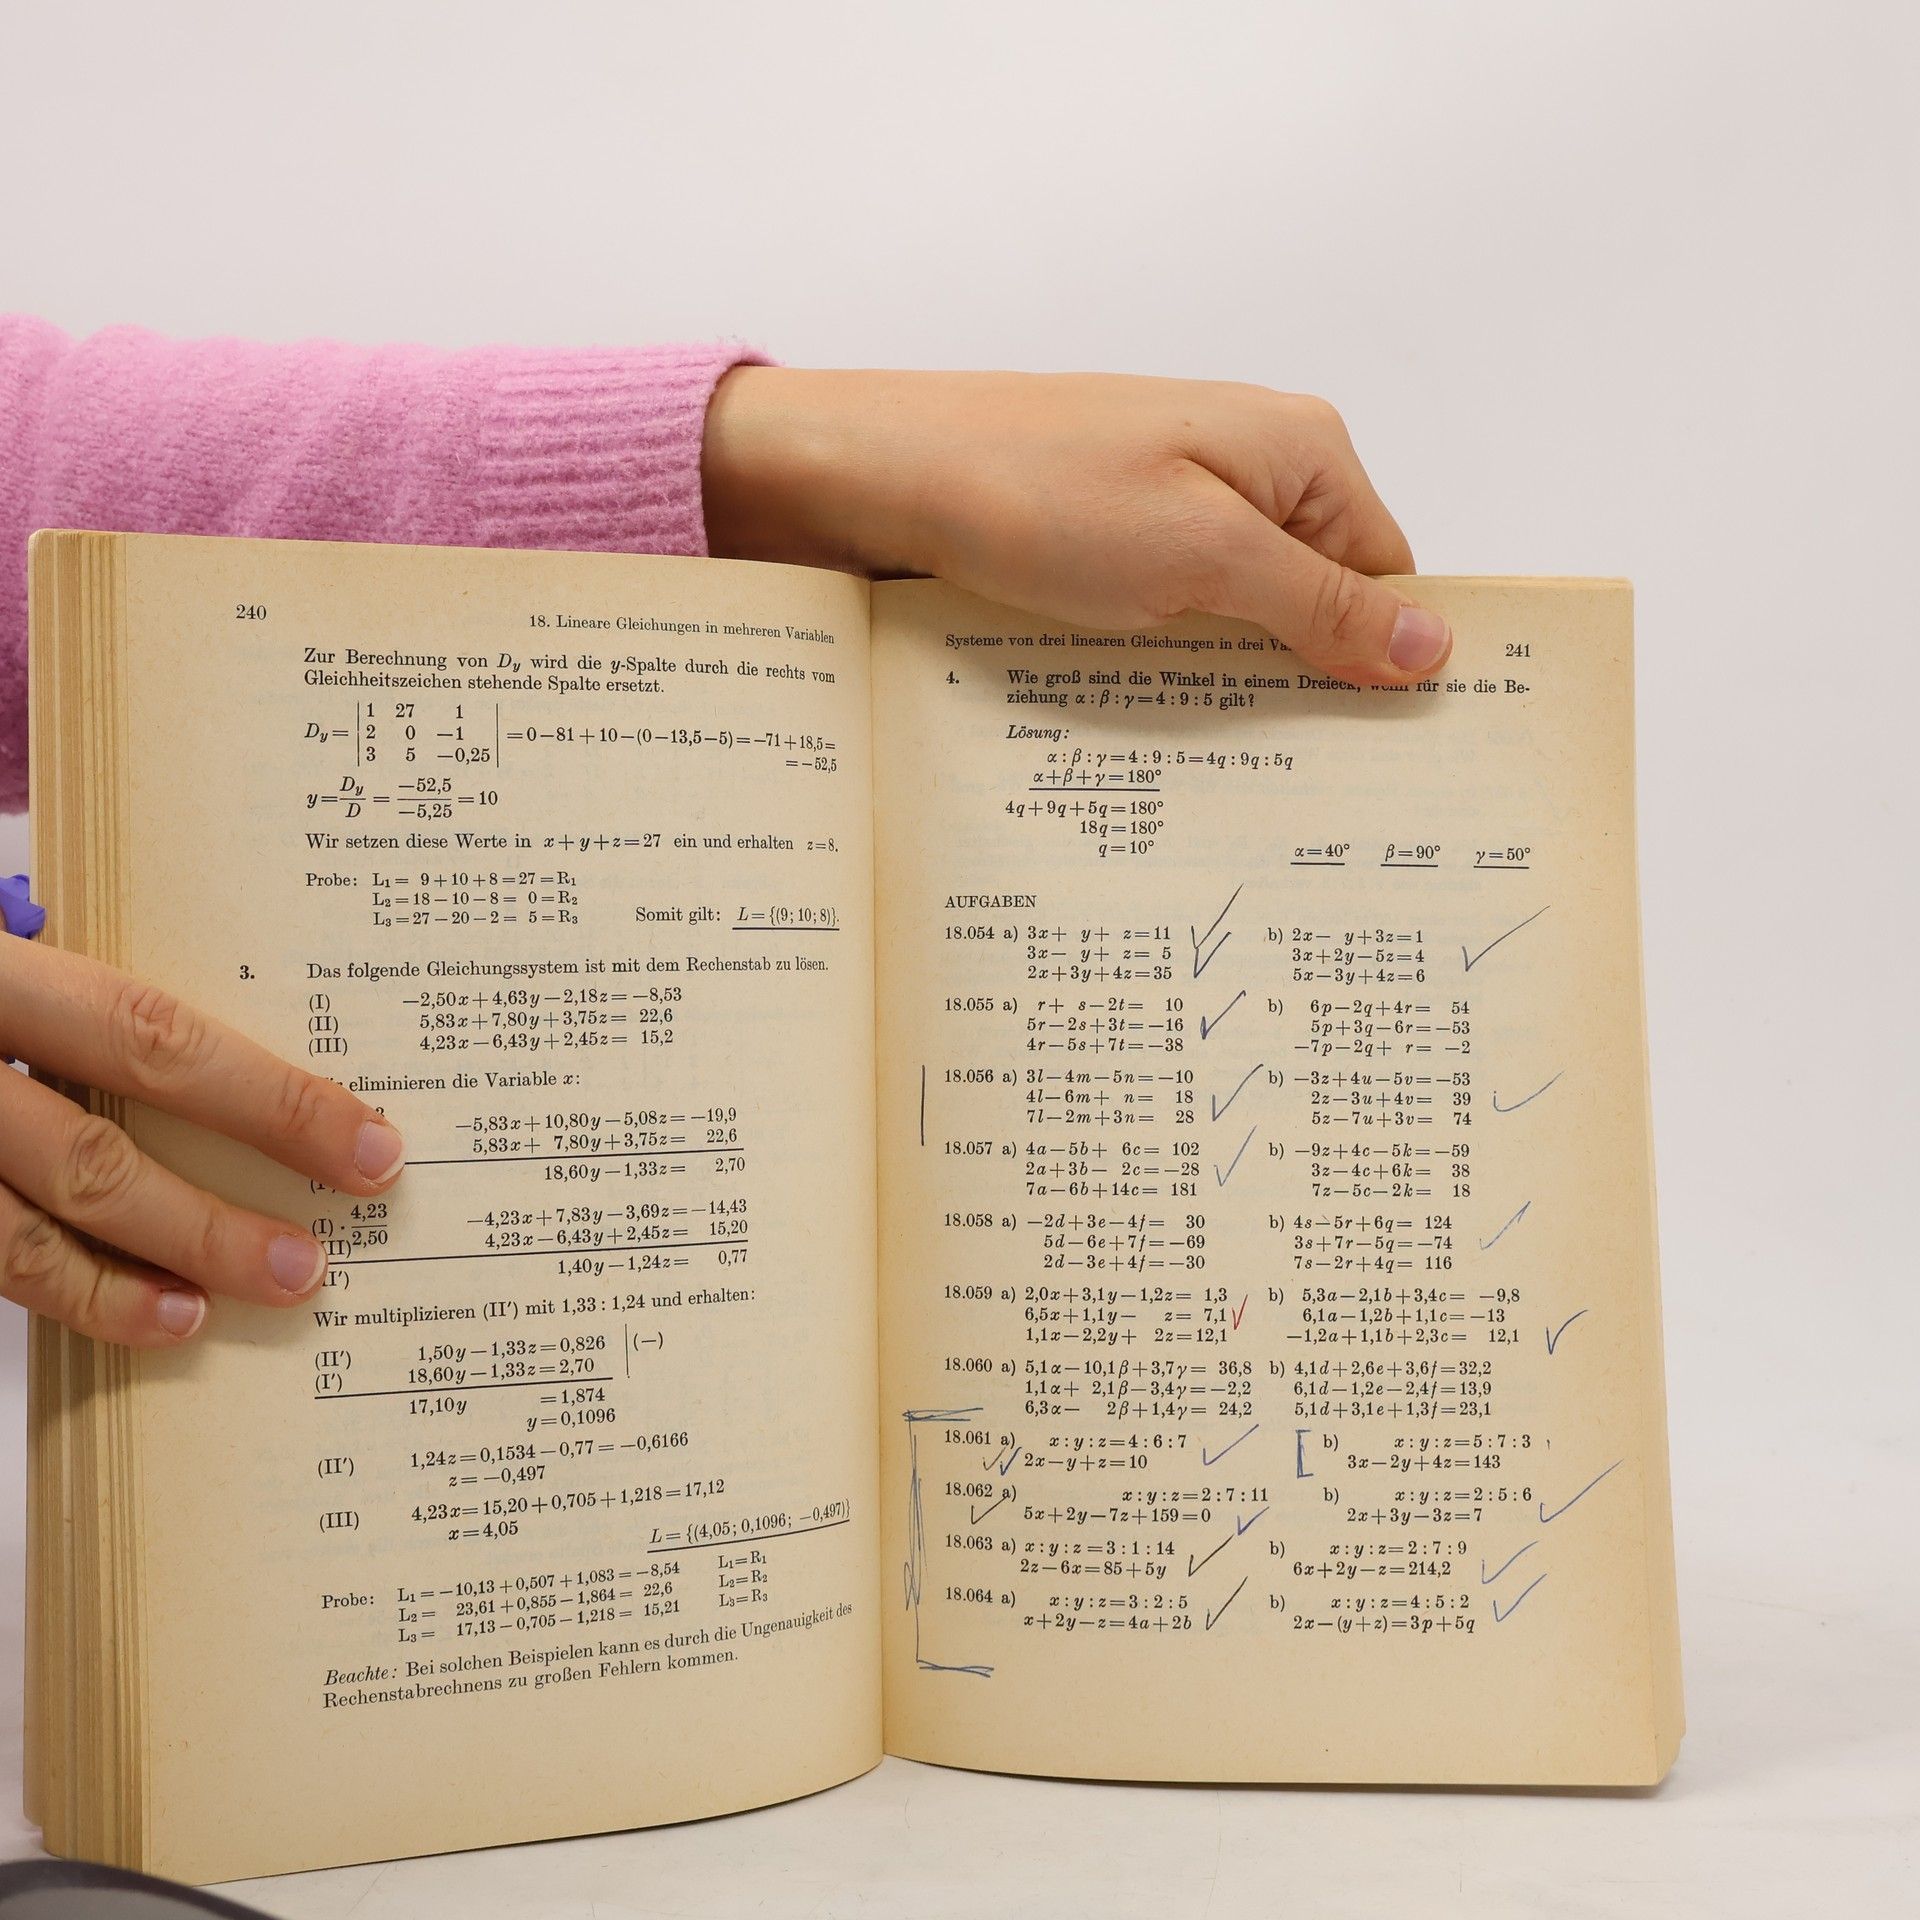 240
18. Lineare Gleichungen in mehreren Variablen
Zur Berechnung von Dy wird die y-Spalte durch die rechts vom
Gleichheitszeichen stehende Spalte ersetzt.
Dy = | 1 27 1 |
| 2 0 −1 | = 0−81+10−(0−13,5−5)=−71+18,5=
| 3 5 −0,25 | =−52,5
y = Dy/D = −52,5/−5,25 = 10
Wir setzen diese Werte in x+y+z=27 ein und erhalten z=8.
Probe: L1 = 9+10+8=27=R1
L2=18−10−8= 0=R2
L3=27−20−2= 5=R3 Somit gilt: L={(9; 10; 8)}.
3. Das folgende Gleichungssystem ist mit dem Rechenstab zu lösen.
(I) −2,50x+4,63y−2,18z=−8,53
(II) 5,83x+7,80y+3,75z= 22,6
(III) 4,23x−6,43y+2,45z= 15,2
eliminieren die Variable x:
−5,83x+10,80y−5,08z=−19,9
5,83x+ 7,80y+3,75z= 22,6
18,60y−1,33z= 2,70
(I) · 4,23/2,50 −4,23x+7,83y−3,69z=−14,43
4,23x−6,43y+2,45z= 15,20
1,40y−1,24z= 0,77
Wir multiplizieren (II′) mit 1,33 : 1,24 und erhalten:
(II′) 1,50y−1,33z=0,826 | (−)
(I′) 18,60y−1,33z=2,70
17,10y =1,874
y=0,1096
(II′) 1,24z=0,1534−0,77=−0,6166
z=−0,497
(III) 4,23x=15,20+0,705+1,218=17,12
x=4,05
L={(4,05; 0,1096; −0,497)}
Probe: L1=−10,13+0,507+1,083=−8,54 L1=R1
L2= 23,61+0,855−1,864= 22,6 L2=R2
L3= 17,13−0,705−1,218= 15,21 L3=R3
Beachte: Bei solchen Beispielen kann es durch die Ungenauigkeit des
Rechenstabrechnens zu großen Fehlern kommen.
Systeme von drei linearen Gleichungen in drei
241
4. Wie groß sind die Winkel in einem Dreieck, wenn für sie die Be-
ziehung α : β : γ=4 : 9 : 5 gilt?
Lösung:
α : β : γ=4 : 9 : 5=4q : 9q : 5q
α+β+γ=180°
4q+9q+5q=180°
18q=180°
q=10° α=40° β=90° γ=50°
AUFGABEN
18.054 a) 3x+ y+ z=11 b) 2x− y+3z=1
3x− y+ z= 5 3x+2y−5z=4
2x+3y+4z=35 5x−3y+4z=6
18.055 a) r+ s−2t= 10 b) 6p−2q+4r= 54
5r−2s+3t=−16 5p+3q−6r=−53
4r−5s+7t=−38 −7p−2q+ r= −2
18.056 a) 3l−4m−5n=−10 b) −3z+4u−5v=−53
4l−6m+ n= 18 2z−3u+4v= 39
7l−2m+3n= 28 5z−7u+3v= 74
18.057 a) 4a−5b+ 6c= 102 b) −9z+4c−5k=−59
2a+3b− 2c=−28 3z−4c+6k= 38
7a−6b+14c= 181 7z−5c−2k= 18
18.058 a) −2d+3e−4f= 30 b) 4s−5r+6q= 124
5d−6e+7f=−69 3s+7r−5q=−74
2d−3e+4f=−30 7s−2r+4q= 116
18.059 a) 2,0x+3,1y−1,2z= 1,3 b) 5,3a−2,1b+3,4c= −9,8
6,5x+1,1y− z= 7,1 6,1a−1,2b+1,1c=−13
1,1x−2,2y+ 2z=12,1 −1,2a+1,1b+2,3c= 12,1
18.060 a) 5,1α−10,1β+3,7γ= 36,8 b) 4,1d+2,6e+3,6f=32,2
1,1α+ 2,1β−3,4γ=−2,2 6,1d−1,2e−2,4f=13,9
6,3α− 2β+1,4γ= 24,2 5,1d+3,1e+1,3f=23,1
18.061 a) x : y : z=4 : 6 : 7 b) x : y : z=5 : 7 : 3
2x−y+z=10 3x−2y+4z=143
18.062 a) x : y : z=2 : 7 : 11 b) x : y : z=2 : 5 : 6
5x+2y−7z+159=0 2x+3y−3z=7
18.063 a) x : y : z=3 : 1 : 14 b) x : y : z=2 : 7 : 9
2z−6x=85+5y 6x+2y−z=214,2
18.064 a) x : y : z=3 : 2 : 5 b) x : y : z=4 : 5 : 2
x+2y−z=4a+2b 2x−(y+z)=3p+5q